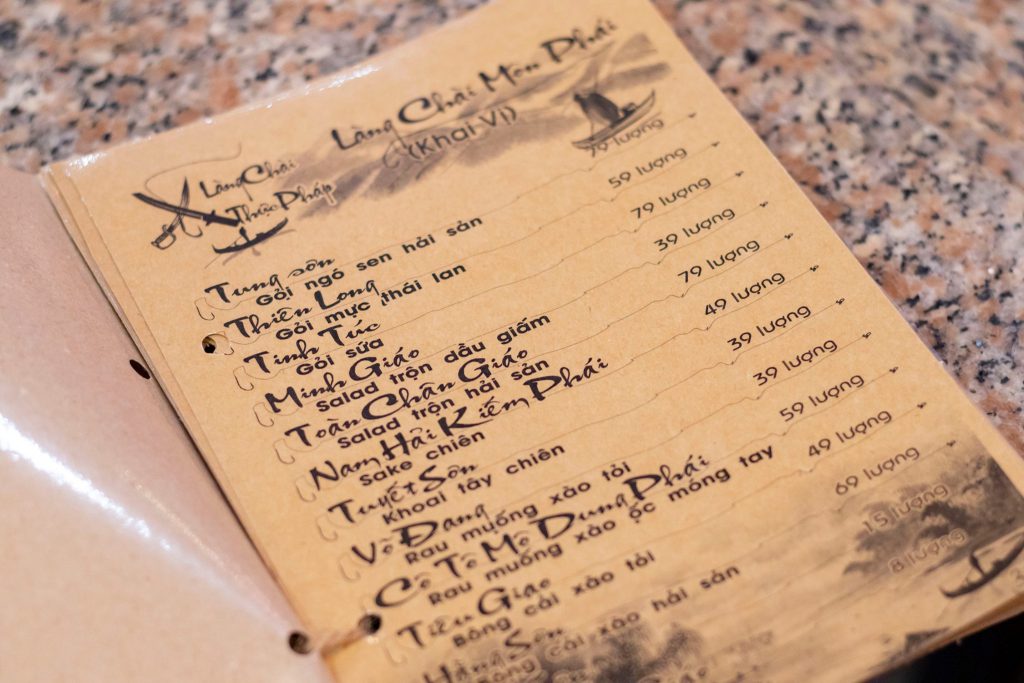 Làng Chài Môn Phái
(Khai Vị)
Làng Chài
Thực Pháp
79 lượng
Tung sôn
Gỏi ngó sen hải sản
59 lượng
Thiên Long
Gỏi mực thái lan
79 lượng
Tinh Túc
Gỏi sứa
39 lượng
Minh Giáo
Salad trộn dầu giấm
79 lượng
Toàn Chân Giáo
Salad trộn hải sản
49 lượng
Nam Hải Kiếm Phái
Sake chiên
39 lượng
Tuyết Sôn
Khoai tây chiên
39 lượng
Võ Đang
Rau muống xào tỏi
59 lượng
Cô Tô Mộ Dung Phái
Rau muống xào ốc móng tay
49 lượng
Tiêu Giao
Bông cải xào tỏi
69 lượng
Hằng Sôn
Bông cải xào hải sản
15 lượng
8 lượng